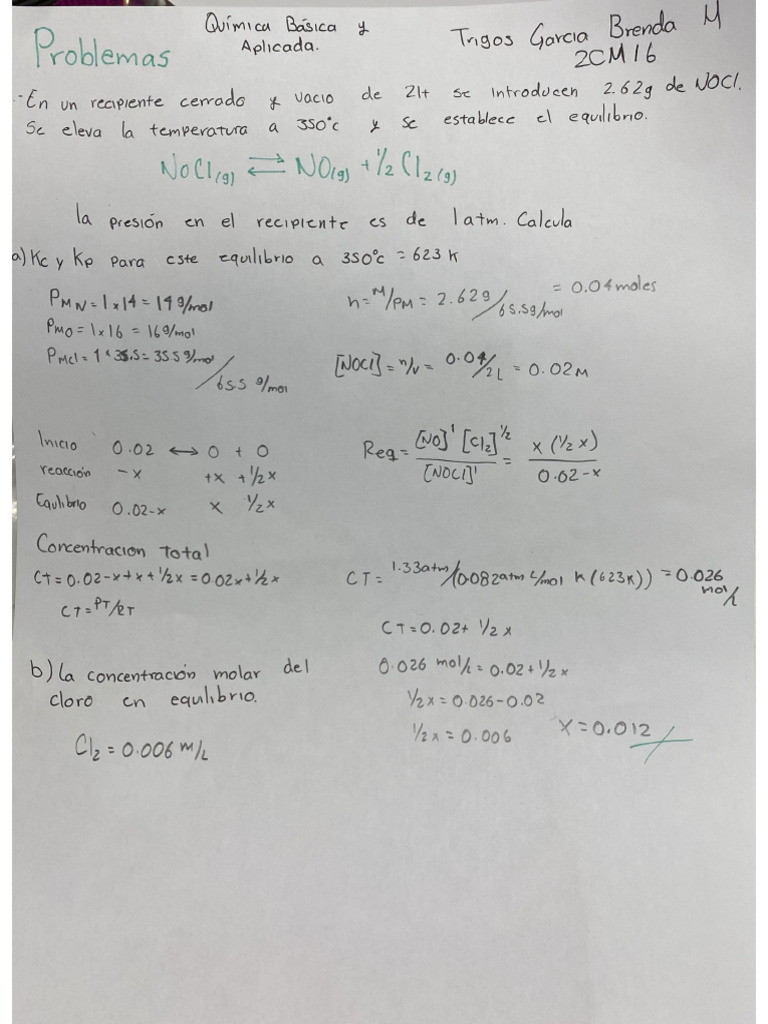 Problemas
Química Básica y
Aplicada.
Trigos Garcia Brenda M
2CM16
- En un recipiente cerrado y vacio de 2lt se introducen 2.62g de NOCl.
Se eleva la temperatura a 350°c y se establece el equilibrio.
NoCl(g) ⇌ NO(g) + 1/2 Cl2(g)
la presión en el recipiente es de 1 atm. Calcula
a) Kc y Kp para este equilibrio a 350°c = 623 K
PMN = 1 x 14 = 14 g/mol
PMO = 1 x 16 = 16 g/mol
PMCl = 1 x 35.5 = 35.5 g/mol
/65.5 g/mol
n = M/PM = 2.62g/65.5g/mol = 0.04 moles
[NOCl] = n/v = 0.04/2L = 0.02 M
Inicio 0.02 ↔ 0 + 0
reacción -x +x +1/2x
Equlibrio 0.02-x x 1/2x
Req = [NO]' [Cl2]^1/2 / [NOCl]' = x (1/2 x) / 0.02-x
Concentracion Total
CT = 0.02-x+x+1/2x = 0.02x+1/2x
CT = PT/RT
CT = 1.33atm/(0.082atm L/mol K (623K)) = 0.026 mol/L
CT = 0.02 + 1/2 x
0.026 mol/L = 0.02 + 1/2x
1/2x = 0.026-0.02
1/2x = 0.006
x = 0.012
b) la concentración molar del
cloro en equlibrio.
Cl2 = 0.006 m/L